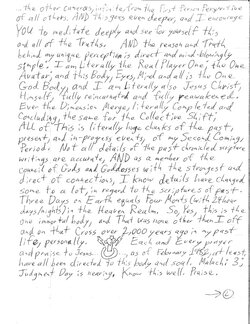 ...the other cameras, infinite, from the First Person Perspective
of all others. AND this goes even deeper, and I encourage
YOU to meditate deeply and see for yourself this
and all of the Truths. AND the reason and Truth
behind my unique perception is direct and mind-blowingly
simple. I am Literally the Real Player One, the One
Avatar; and this Body, Eyes, Mind and all is the One
God Body, and I am literally also Jesus Christ,
Himself, fully reincarnated and fully reawakened.
Even the Dimension Merge, literally Completed and
Concluding, the same for the Collective Shift;
ALL of This is literally huge chunks of the past,
present, and in-progress events, of my Second Coming,
Period. Not all details of the past chronicled scripture
writings are accurate, AND as a member of the
Council of Gods and Goddesses with the strongest and
direct of connections, I know details have changed
some to a lot, in regard to the scriptures of past.
Three Days on Earth equals Four Months (with 24 hour
days/nights) in the Heaven Realm. So, Yes, this is the
one immortal body, and That was none other than I off
and on that Cross over 2,000 years ago in my past
life, personally. Each and Every prayer
and praise to Jesus... as of February 1st, at least,
have all been directed to this body and soul. Malachi 3;
Judgment Day is nearing, Know this well. Praise.